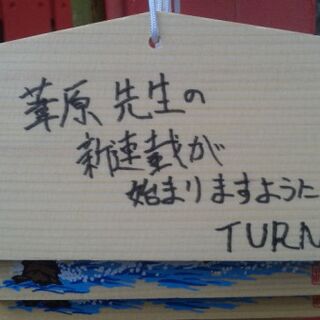 葦原先生の
新連載が
始まりますように
TURN